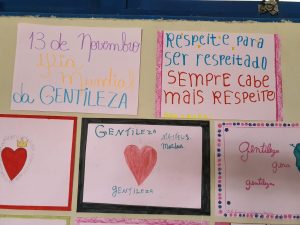 13 de Novembro
Dia
Mundial
da GENTILEZA
Respeite para
ser respeitado
SEMPRE CABE
MAIS RESPEITO
GENTILEZA
GENTILEZA
Gentileza
gera
gentileza